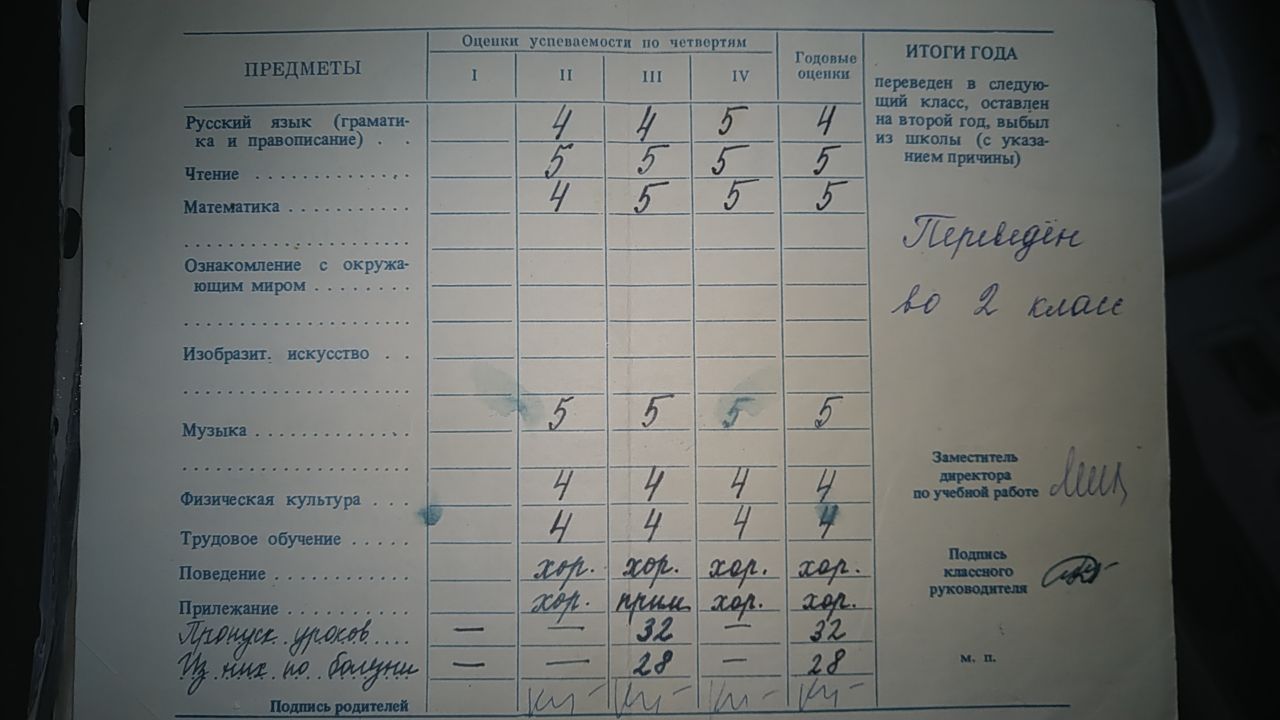 ПРЕДМЕТЫ
Оценки успеваемости по четвертям
I II III IV
Годовые
оценки
Русский язык (грамати-
ка и правописание) . . 4 4 5 4
Чтение . . . . . . . . . . . . . . 5 5 5 5
Математика . . . . . . . . . . . 4 5 5 5
Ознакомление с окружа-
ющим миром . . . . . . . .
Изобразит. искусство . .
Музыка . . . . . . . . . . . . . 5 5 5 5
Физическая культура . . . 4 4 4 4
Трудовое обучение . . . . . 4 4 4 4
Поведение . . . . . . . . . . . хор. хор. хор. хор.
Прилежание . . . . . . . . . . хор. прим. хор. хор.
Пропуск уроков.... — — 32 — 32
Из них по болезни — — 28 — 28
Подпись родителей
ИТОГИ ГОДА
переведен в следую-
щий класс, оставлен
на второй год, выбыл
из школы (с указа-
нием причины)
Переведён
во 2 класс
Заместитель
директора
по учебной работе
Подпись
классного
руководителя
м. п.